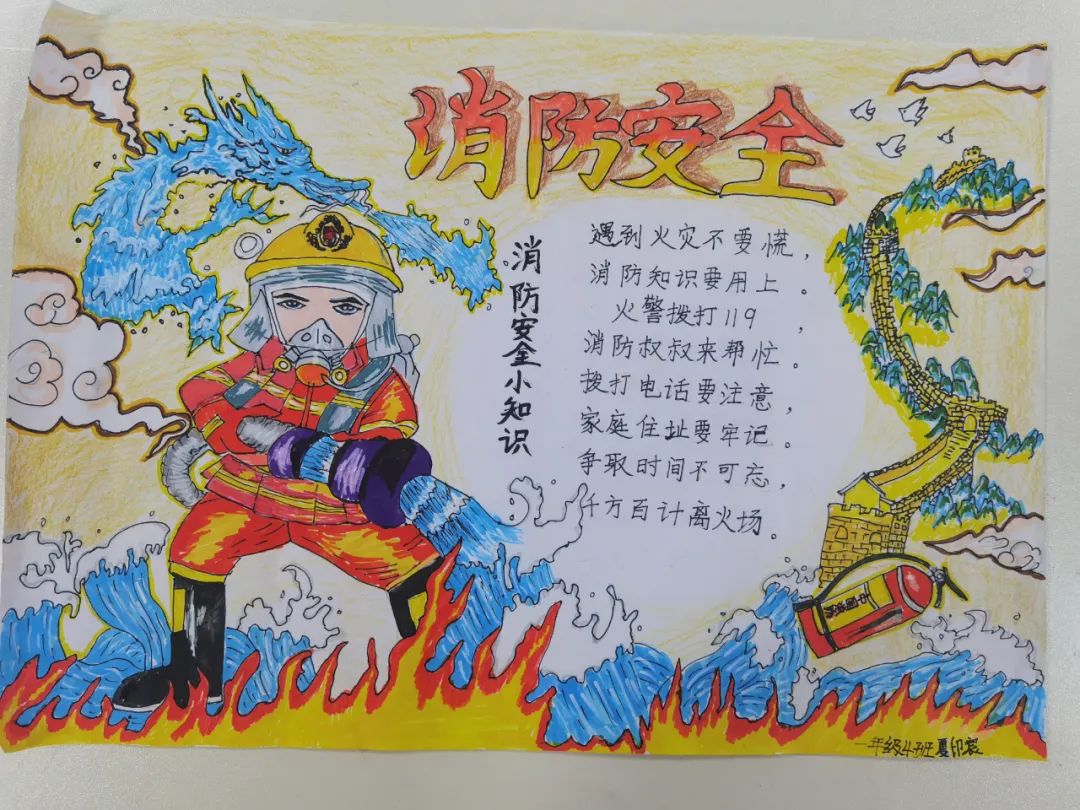 消防安全
消防安全小知识
遇到火灾不要慌，
消防知识要用上。
火警拨打119，
消防叔叔来帮忙。
拨打电话要注意，
家庭住址要牢记。
争取时间不可忘，
千方百计离火场。
一年级4班